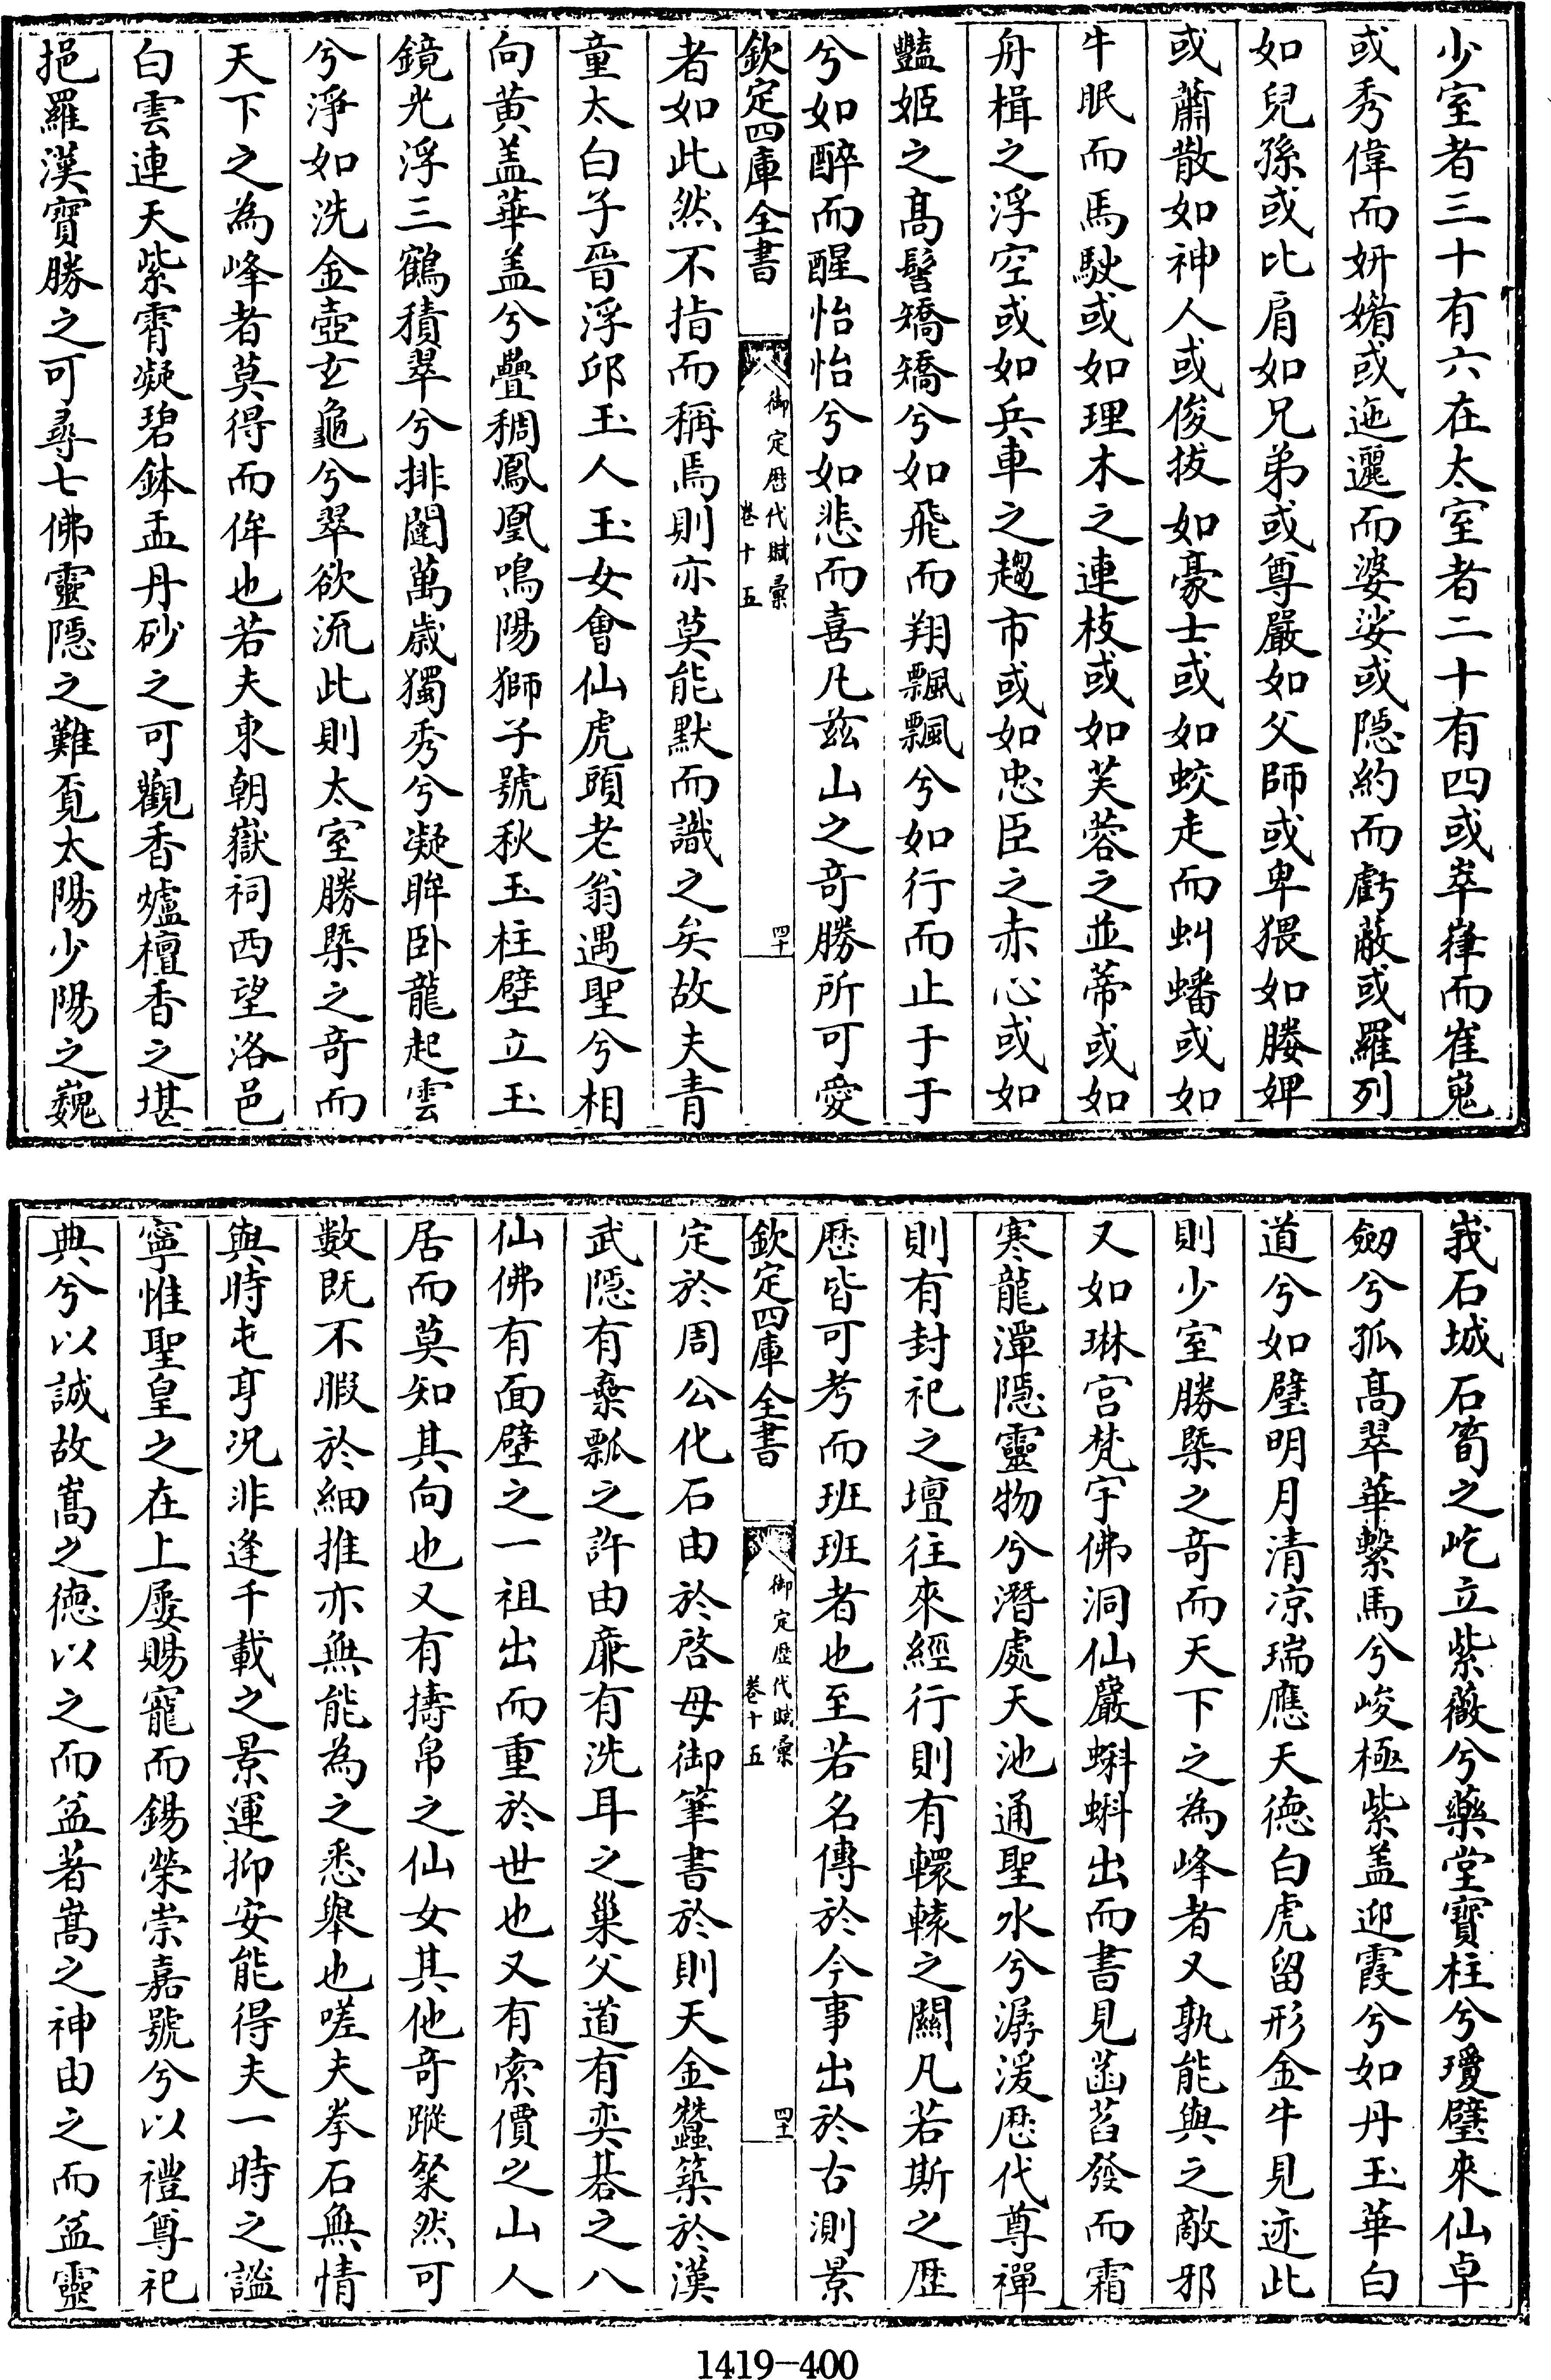 少室者三十有六在太室者二十有四或崒嵂而崔嵬
或秀偉而妍媚或迤邐而婆娑或隠約而虧蔽或羅列
如兒孫或比肩如兄弟或尊嚴如父師或卑猥如媵婢
或蕭散如神人或俊拔如豪士或如蛟走而虯蟠或如
牛眠而馬駛或如理木之連枝或如芙蓉之並蒂或如
舟楫之浮空或如兵車之趨市或如忠臣之赤心或如
豔姬之髙髻矯矯兮如飛而翔飄飄兮如行而止于于
兮如醉而醒怡怡兮如悲而喜凡兹山之竒勝所可愛
欽定四庫全書
御定厯代賦彙
卷十五
四十
者如此然不指而稱焉則亦莫能默而識之矣故夫青
童太白子晉浮邱玉人玉女會仙虎頭老翁遇聖兮相
向黄盖華盖兮疊稠鳳凰鳴陽獅子號秋玉柱壁立玉
鏡光浮三鶴積翠兮排闥萬歳獨秀兮凝眸卧龍起雲
兮淨如洗金壺玄龜兮翠欲流此則太室勝槩之竒而
天下之為峰者莫得而侔也若夫東朝嶽祠西望洛邑
白雲連天紫霄凝碧鉢盂丹砂之可觀香爐檀香之堪
挹羅漢寳勝之可尋七佛靈隠之難覔太陽少陽之巍
峩石城石筍之屹立紫薇兮藥堂寳柱兮瓊壁來仙卓
劒兮孤髙翠華繫馬兮峻極紫盖迎霞兮如丹玉華白
道兮如璧明月清凉瑞應天徳白虎留形金牛見迹此
則少室勝槩之竒而天下之為峰者又孰能與之敵邪
又如琳宫梵宇佛洞仙巖蝌蝌出而書見菡萏發而霜
寒龍潭隠靈物兮潛處天池通聖水兮潺湲厯代尊禪
則有封祀之壇往來經行則有轘轅之關凡若斯之歴
歴皆可考而班班者也至若名傳於今事出於古測景
欽定四庫全書
御定歴代賦彙
卷十五
四十一
定於周公化石由於啓母御筆書於則天金蠶築於漢
武隠有棄瓢之許由亷有洗耳之巢父道有奕碁之八
仙佛有面壁之一祖出而重於世也又有索價之山人
居而莫知其向也又有擣帛之仙女其他竒蹤粲然可
數既不暇於細推亦無能為之悉舉也嗟夫拳石無情
與時屯亨况非逢千載之景運抑安能得夫一時之謚
寧惟聖皇之在上屢賜寵而錫榮崇嘉號兮以禮尊祀
典兮以誠故嵩之徳以之而益著嵩之神由之而益靈
1419-400